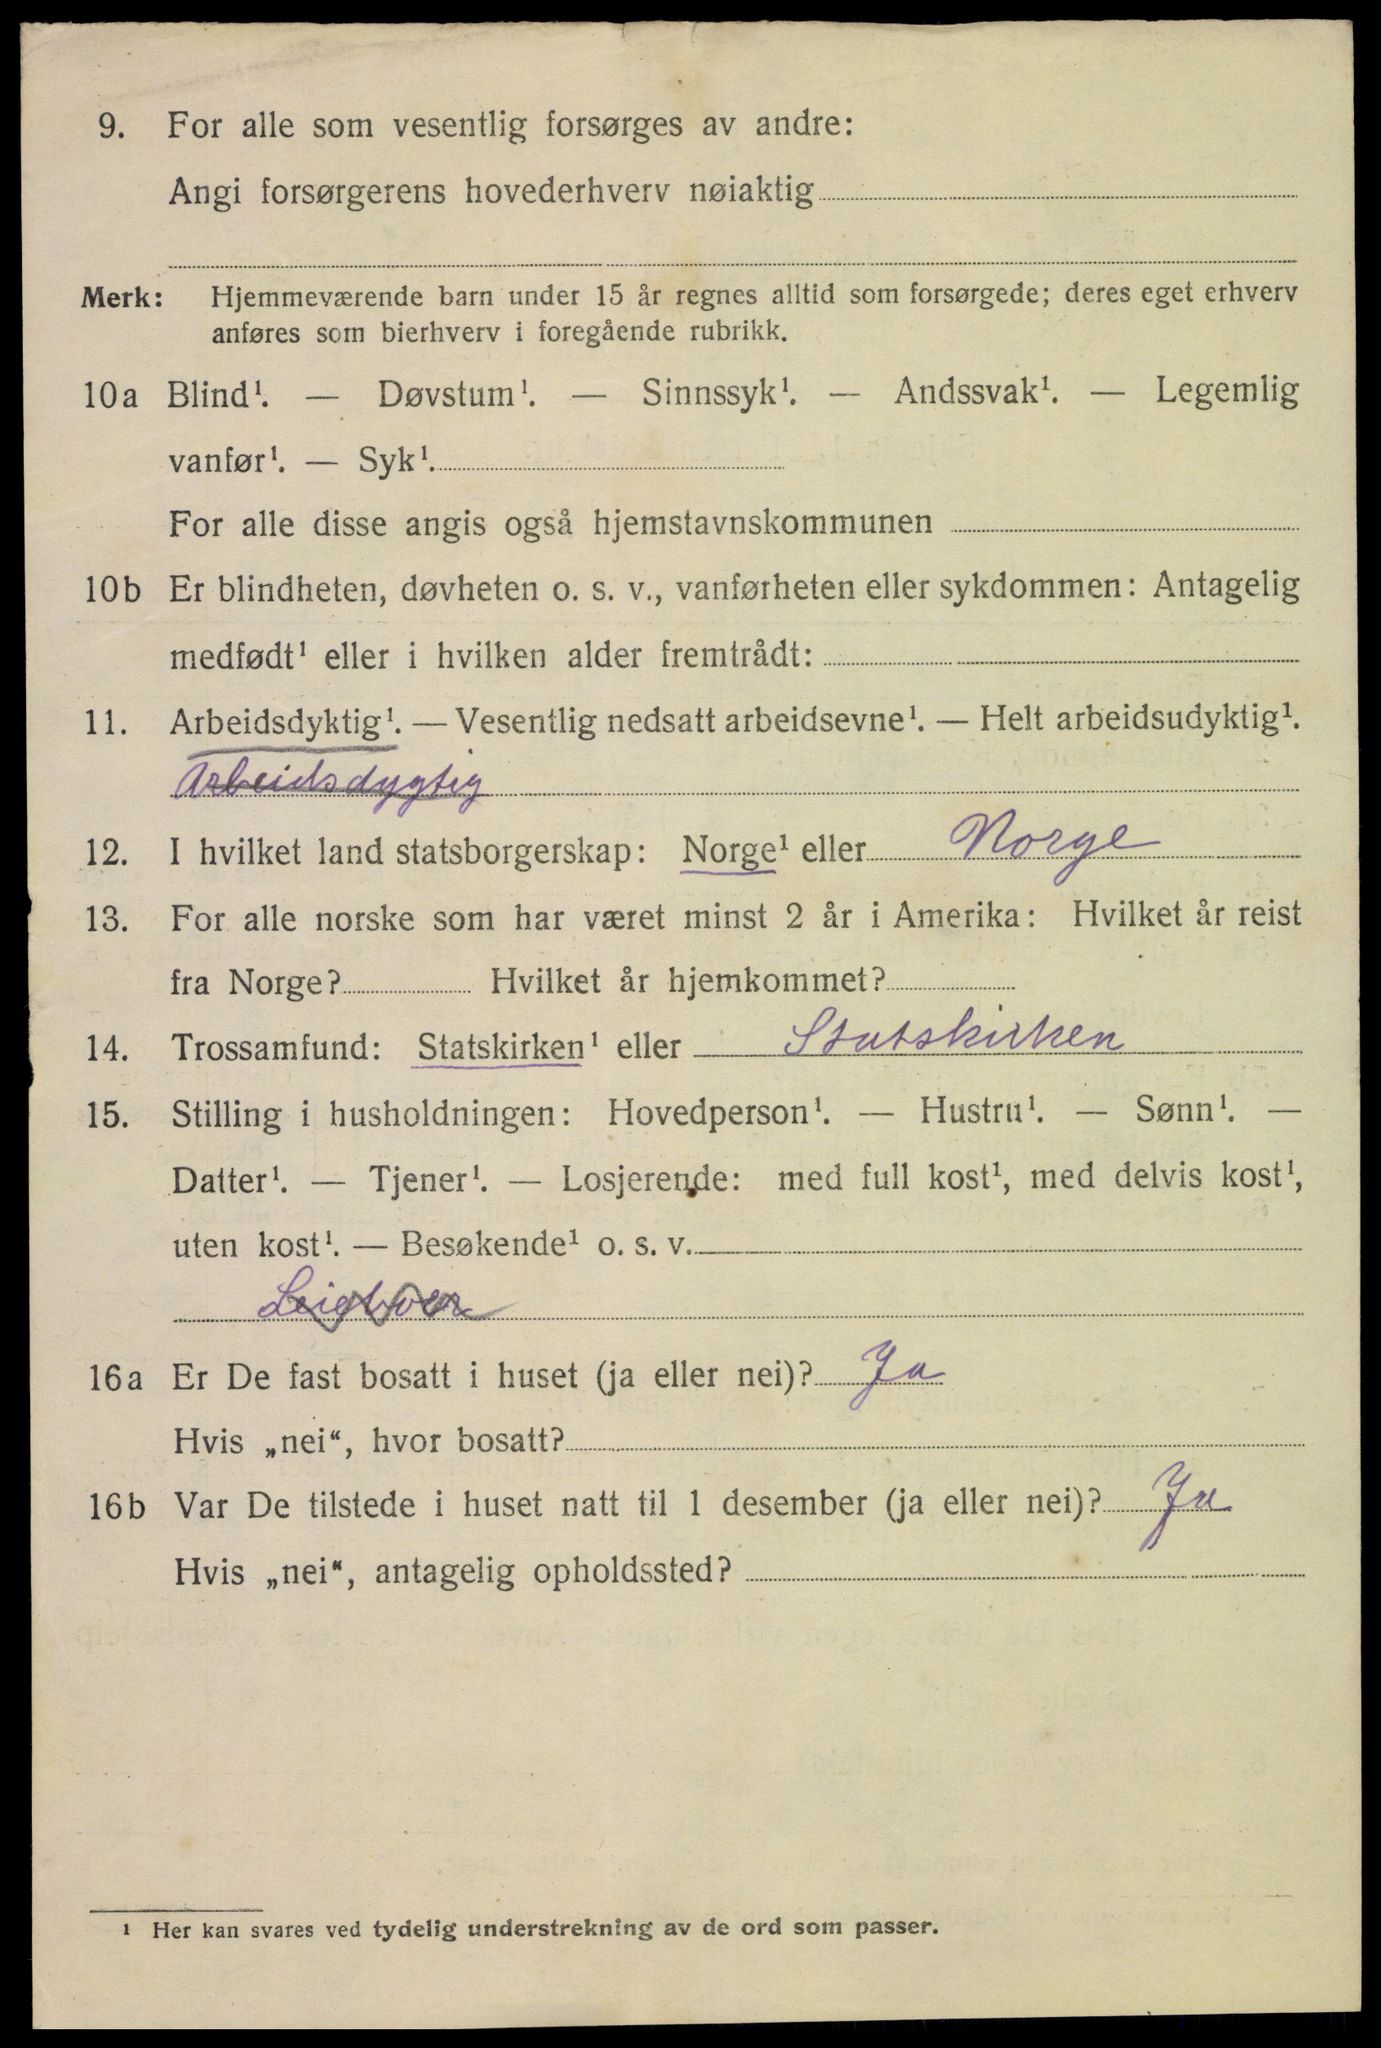 9. For alle som vesentlig forsørges av andre:
Angi forsørgerens hovederhverv nøiaktig
Merk: Hjemmeværende barn under 15 år regnes alltid som forsørgede; deres eget erhverv
anføres som bierhverv i foregående rubrikk.
10a Blind¹. — Døvstum¹. — Sinnssyk¹. — Andssvak¹. — Legemlig
vanfør¹. — Syk¹.
For alle disse angis også hjemstavnskommunen
10b Er blindheten, døvheten o. s. v., vanførheten eller sykdommen: Antagelig
medfødt¹ eller i hvilken alder fremtrådt:
11. Arbeidsdyktig¹. — Vesentlig nedsatt arbeidsevne¹. — Helt arbeidsudyktig¹.
Arbeidsdygtig
12. I hvilket land statsborgerskap: Norge¹ eller Norge
13. For alle norske som har været minst 2 år i Amerika: Hvilket år reist
fra Norge? Hvilket år hjemkommet?
14. Trossamfund: Statskirken¹ eller Statskirken
15. Stilling i husholdningen: Hovedperson¹. — Hustru¹. — Sønn¹. —
Datter¹. — Tjener¹. — Losjerende: med full kost¹, med delvis kost¹,
uten kost¹. — Besøkende¹ o. s. v.
16a Er De fast bosatt i huset (ja eller nei)? Ja
Hvis „nei“, hvor bosatt?
16b Var De tilstede i huset natt til 1 desember (ja eller nei)? Ja
Hvis „nei“, antagelig opholdssted?
¹ Her kan svares ved tydelig understrekning av de ord som passer.